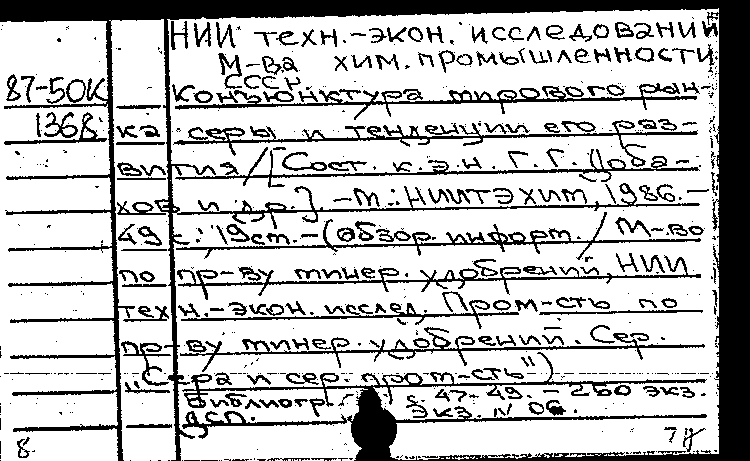 НИИ техн.-экон. исследований
М-ва хим. промышленности
СССР
87-50К Конъюнктура мирового рын-
1368 ка серы и тенденции его раз-
вития / [Сост. к.э.н. Г.Г. Лоба-
хов и др.] – М.: НИИТЭХИМ, 1986. –
49 с.: 19 ст. – (Обзор. информ. / М-во
по пр-ву минер. удобрений, НИИ
техн.-экон. исслед. Пром-сть по
пр-ву минер. удобрений. Сер.
„Сера и сер. пром-сть")
Библиогр. с. 47-49. – 250 экз.
ДСП. Экз. N 06.
8